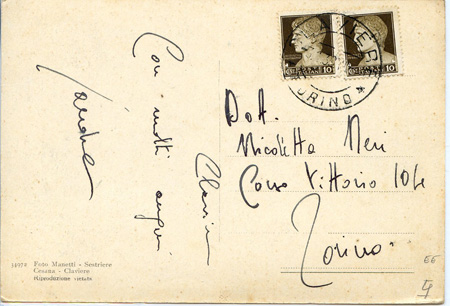 Con molti auguri
Dott.
Nicoletta Neri
Corso Vittorio 104
Torino
34972 Foto Manetti - Sestriere
Cesana - Claviere
Riproduzione vietata
10
10
TORINO
E6